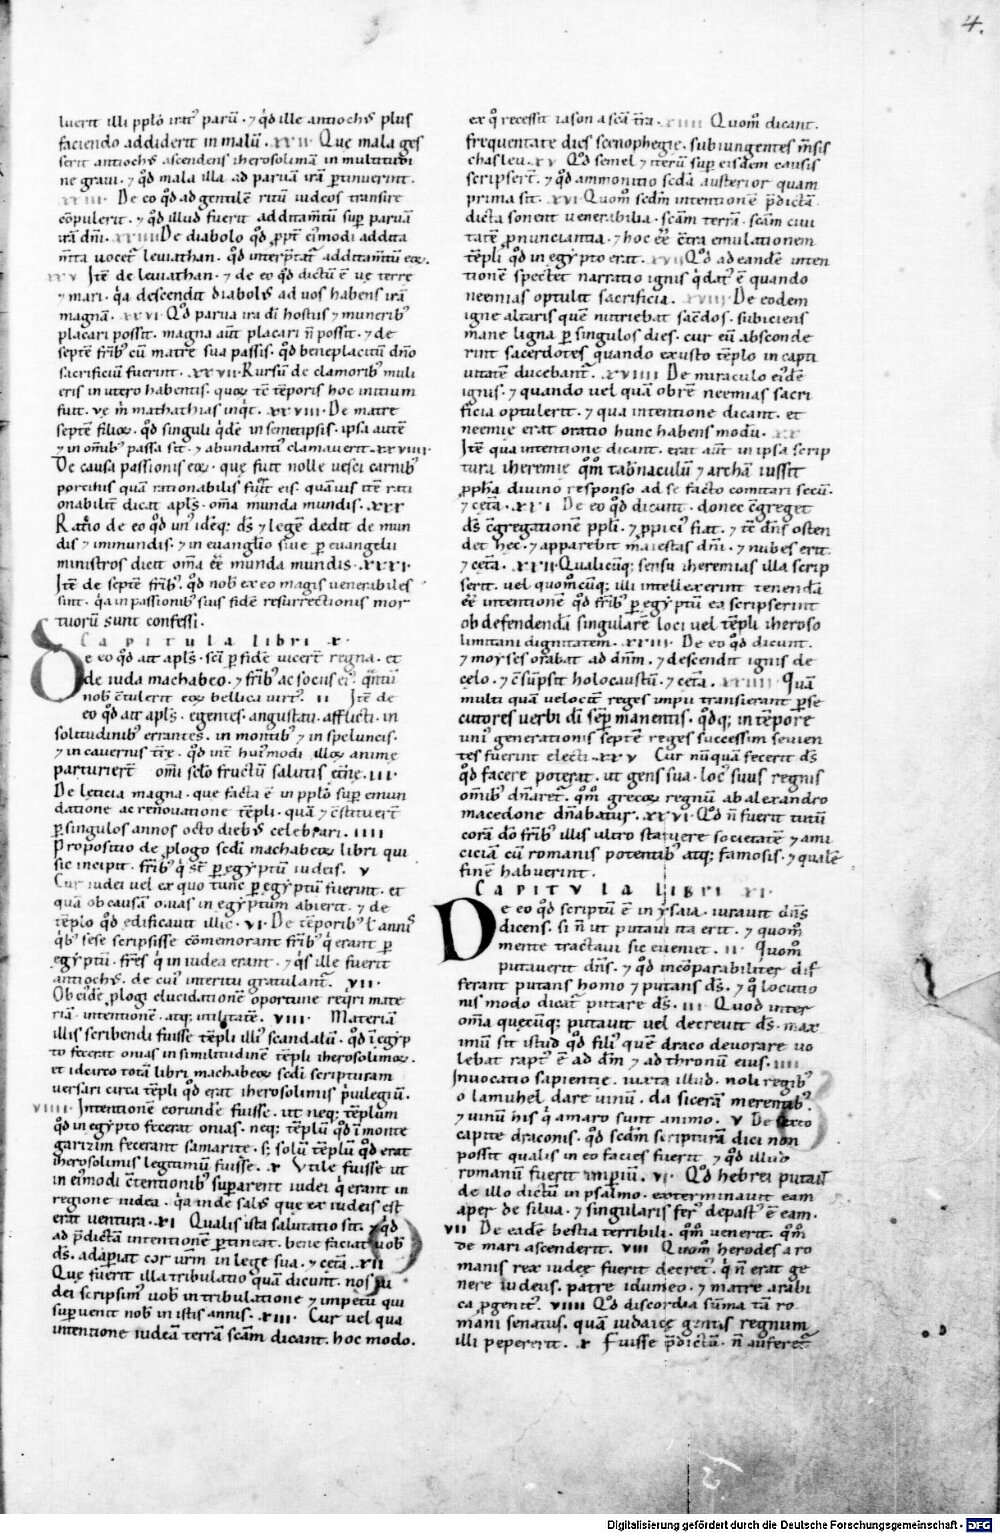 4.
luerit illi pplo irat᷒ parū · ⁊ qd ille antioch᷒ plus
faciendo addiderit in malū . XXII · Que mala ges
serit antioch᷒ ascendens iherosolimā in multitudi
ne graui . ⁊ qd mala illa ad paruā irā ptinuerint .
XXIII . De eo qd ad gentilē ritū iudeos transire
cōpulerit . ⁊ qd illud fuerit additamtū sup paruā
irā dni . XXIIII De diabolo qd ppt ei᷒modi addita
mta uocet᷑ leuiathan . qd interptat᷑ additamtū eoꝝ .
XXV Itē de leuiathan . ⁊ de eo qd dictū ē ue terre
⁊ mari . qa descendit diabol᷒ ad uos habens irā
magnā . XXVI . Qd parua ira di hostiis ⁊ munerib᷒
placari possit . magna aūt placari n̄ possit . ⁊ de
septē frib᷒ cū matre sua passis . qd beneplacitū dn̄o
sacrificiū fuerint . XXVII . Rursū de clamorib᷒ muli
eris in utero habentis . quoꝝ tē tēporis hoc initium
fuit . ue m̄ mathathias inqt . XXVIII . De matre
septē filioꝝ . qd singuli qde in semetipsis . ipsa autē
⁊ in omib᷒ passa sit . ⁊ abundanti᷒ clamauerit . XXVIIII .
De causa passionis eoꝝ . que fuit nolle uesci carnib᷒
porcinis quā rationabilis fuerit eis . quāuis itē rati
onabilit᷑ dicat apls . om̄a munda mundis . XXX
Ratio de eo qd un᷒ idēq; ds ⁊ legē dedit de mun
dis ⁊ immundis . ⁊ in euanglio siue p euangelii
ministros dicit om̄a ee munda mundis . XXXI .
Itē de septē frib᷒ . qd nob ex eo magis uenerabiles
sint . qa in passionib᷒ suis fidē resurrectionis mor
tuorū sunt confessi .
Capitula libri X .
De eo qd ait apls . sci p fidē uicert regna . et
de iuda machabeo . ⁊ frib᷒ ac sociis ei᷒ . qntū
nob cōtulerit eoꝝ bellica uirt᷒ . II Itē de
eo qd ait apls . egentes . angustiati . afflicti . in
solitudinib᷒ errantes . in montib᷒ ⁊ in speluncis .
⁊ in cauernis tre . qd int hui᷒modi illoꝝ anime
parturiert omi sclo fructū salutis etne . III .
De leticia magna . que facta ē in pplo sup emun
datione ac renouatione tēpli . quā ⁊ cstituert
p singulos annos octo dieb᷒ celebrari . IIII
Propositio de plogo scdi machabeoꝝ libri qui
sic incipit . frib᷒ q st p egyptū iudeis . V
Cur iudei uel ex quo tunc p egyptū fuerint . et
quā ob causā onias in egyptum abierit . ⁊ de
tēplo qd edificauit illic . VI . De tēporib᷒ ł annis
qb᷒ sese scripsisse cōmemorant frib᷒ q erant p
egyptū . fres q in iudea erant . ⁊ qs ille fuerit
antioch᷒ . de cui᷒ interitu gratulant᷑ . VII .
Ob eidē plogi elucidationē oportune reqri mate
riā . intentionē . atq; utilitatē . VIII . Materiā
illis scribendi fuisse tēpli illi᷒ scandalū . qd ī egyp
to fecerat onias in similitudinē tēpli iherosolimoꝝ .
et idcirco totā libri machabeoꝝ scdi scripturam
uersari circa tēpli qd erat iherosolimis priuilegiū .
VIIII . Intentionē eorundē fuisse . ut neq; tēplum
qd in egypto fecerat onias . neq; tēplū qd ī monte
garizim fecerant samarite . s; solū tēplū qd erat
iherosolimis legitimū fuisse . X Utile fuisse ut
in ei᷒modi ctentionib᷒ suparent iudei q erant in
regione iudea . qa inde sal᷒ que ex iudeis est
erat uentura . XI Qualis ista salutatio sit . ⁊ qd
ad pdictā intentionē ptineat . bene faciat uob
ds . adapiat cor urm in lege sua . ⁊ ceta . XII
Que fuerit illa tribulatio quā dicunt . nos iu
dei scripsim᷒ uob in tribulatione ⁊ impetu qui
supuenit nob in istis annis . XIII . Cur uel qua
intentione iudeā terrā scam dicant . hoc modo .
ex q recessit iason a scā tra . XIIII Quom dicant .
frequentate dies scenophegie . subiungentes msis
chasleu . XV Qd semel ⁊ iterū sup eisdem causis
scripsert . ⁊ qd ammonitio scda austerior quam
prima sit . XVI . Quom scdm intentionē pdictā
dicta sonent uenerabilia . scam terrā . scam ciui
tatē pnunciantia . ⁊ hoc ee ctra emulationem
tēpli qd in egypto erat . XVII Qd ad eandē inten
tionē spectet narratio ignis qdat᷒ ē quando
neemias optulit sacrificia . XVIII . De eodem
igne altaris quē nutriebat sacdos . subiciens
mane ligna p singulos dies . cur eū absconde
rint sacerdotes quando exusto tēplo in capti
uitatē ducebant᷑ . XVIIII De miraculo ei᷒dē
ignis . ⁊ quando uel quā obrē neemias sacri
ficia optulerit . ⁊ qua intentione dicant . et
neemie erat oratio hunc habens modū . XX
Itē qua intentione dicant . erat aūt in ipsa scrip
tura iheremie qm tabnaculū ⁊ archā iussit
ppha diuino responso ad se facto comitari secū .
⁊ ceta . XXI De eo qd dicunt . donec cgreget
ds cgregationē ppli . ⁊ ppici᷒ fiat . ⁊ tē dns osten
det hec . ⁊ apparebit maiestas dni . ⁊ nubes erit .
⁊ ceta . XXII Qualicūq; sensu iheremias illa scrip
serit . uel quomcūq; illi intellexerint tenendā
ee intentionē qd frib᷒ p egyptū ea scripserint
ob defendendā singularē loci uel tēpli iheroso
limitani dignitatem . XXIII . De eo qd dicunt .
⁊ moyses orabat ad dnm . ⁊ descendit ignis de
celo . ⁊ csūpsit holocaustū . ⁊ ceta . XXIIII Quā
multi quā uelocit᷑ reges impii transierant pse
cutores uerbi di semp manentis . qdq; in tēpore
uni᷒ generationis septē reges successim seuien
tes fuerint electi . XXV Cur nūquā fecerit ds
qd facere poterat . ut gens sua . loc᷒ suus regnis
omib᷒ dnaret᷑ . qm grecoꝝ regnū ab alexandro
macedone dnabatur . XXVI . Qd n̄ fuerit tutū
corā do frib᷒ illis ultro statuere societatē ⁊ ami
ciciā cū romanis potentib᷒ atq; famosis . ⁊ qualē
finē habuerint .
Capitula libri XI .
De eo qd scriptū ē in ysaia . iurauit dns
dicens . si n̄ ut putaui ita erit . ⁊ quom
mente tractaui sic eueniet . II . Quom
putauerit dns . ⁊ qd incōparabiliter dif
ferant putans homo ⁊ putans ds . ⁊ q locutio
nis modo dicat᷑ putare ds . III . Quod inter
om̄a quecūq; putauit uel decreuit ds . max
imū sit istud qd fili᷒ quē draco deuorare uo
lebat rapt᷒ ē ad dm ⁊ ad thronū eius . IIII
Inuocatio sapientie . iuxta illud . noli regib᷒
o lamuhel dare uinū . da sicerā merentib᷒ .
⁊ uinū his q amaro sunt animo . V De sexto
capite draconis . qd scdm scripturā dici non
possit qualis in eo facies fuerit ⁊ qd illud
romanū fuerit impiū . VI . Qd hebrei putant
de illo dictū in psalmo . exterminauit eam
aper de silua . ⁊ singularis fer᷒ depast᷒ ē eam .
VII De eadē bestia terribili . qm uenerit . qm
de mari ascenderit . VIII Quom herodes a ro
manis rex iudee fuerit decret᷒ . q n̄ erat ge
nere iudeus . patre idumeo . ⁊ matre arabi
ca pgenit᷒ . VIIII Qd discordia summa tā ro
mani senatus . quā iudaice gentis regnum
illi pepererit . X Fuisse pdictū . n̄ auferet᷑
Digitalisierung gefördert durch die Deutsche Forschungsgemeinschaft - DFG